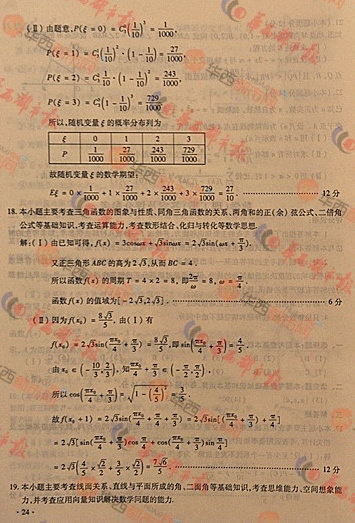 (Ⅱ)由题意,P(ξ=0)=C₃⁰(1/10)³=1/1000,
P(ξ=1)=C₃¹(1/10)²·(1-1/10)=27/1000,
P(ξ=2)=C₃²·1/10·(1-1/10)²=243/1000,
P(ξ=3)=C₃³(1-1/10)³=729/1000
所以,随机变量ξ的概率分布列为
ξ 0 1 2 3
P 1/1000 27/1000 243/1000 729/1000
故随机变量ξ的数学期望:
Eξ=0×1/1000+1×27/1000+2×243/1000+3×729/1000=27/10. 12分
18.本小题主要考查三角函数的图象与性质、同角三角函数的关系、两角和的正(余)弦公式、二倍角
公式等基础知识,考查运算能力,考查数形结合、化归与转化等数学思想.
解:(Ⅰ)由已知可得,f(x)=3cosωx+√3sinωx=2√3sin(ωx+π/3),
又正三角形ABC的高为2√3,从而BC=4.
所以函数f(x)的周期T=4×2=8,即2π/ω=8,ω=π/4.
函数f(x)的值域为[-2√3,2√3]. 6分
(Ⅱ)因为f(x₀)=8√3/5,由(Ⅰ)有
f(x₀)=2√3sin(πx₀/4+π/3)=8√3/5,即sin(πx₀/4+π/3)=4/5.
由x₀∈(-10/3,2/3),知πx₀/4+π/3∈(-π/2,π/2)
所以cos(πx₀/4+π/3)=√(1-(4/5)²)=3/5.
故f(x₀+1)=2√3sin(πx₀/4+π/4+π/3)=2√3sin[(πx₀/4+π/3)+π/4]
=2√3[sin(πx₀/4+π/3)cosπ/4+cos(πx₀/4+π/3)sinπ/4]
=2√3(4/5×√2/2+3/5×√2/2)=7√6/5. 12分
19.本小题主要考查线面关系、直线与平面所成的角、二面角等基础知识,考查思维能力、空间想象能
力,并考查应用向量知识解决数学问题的能力.
·24·